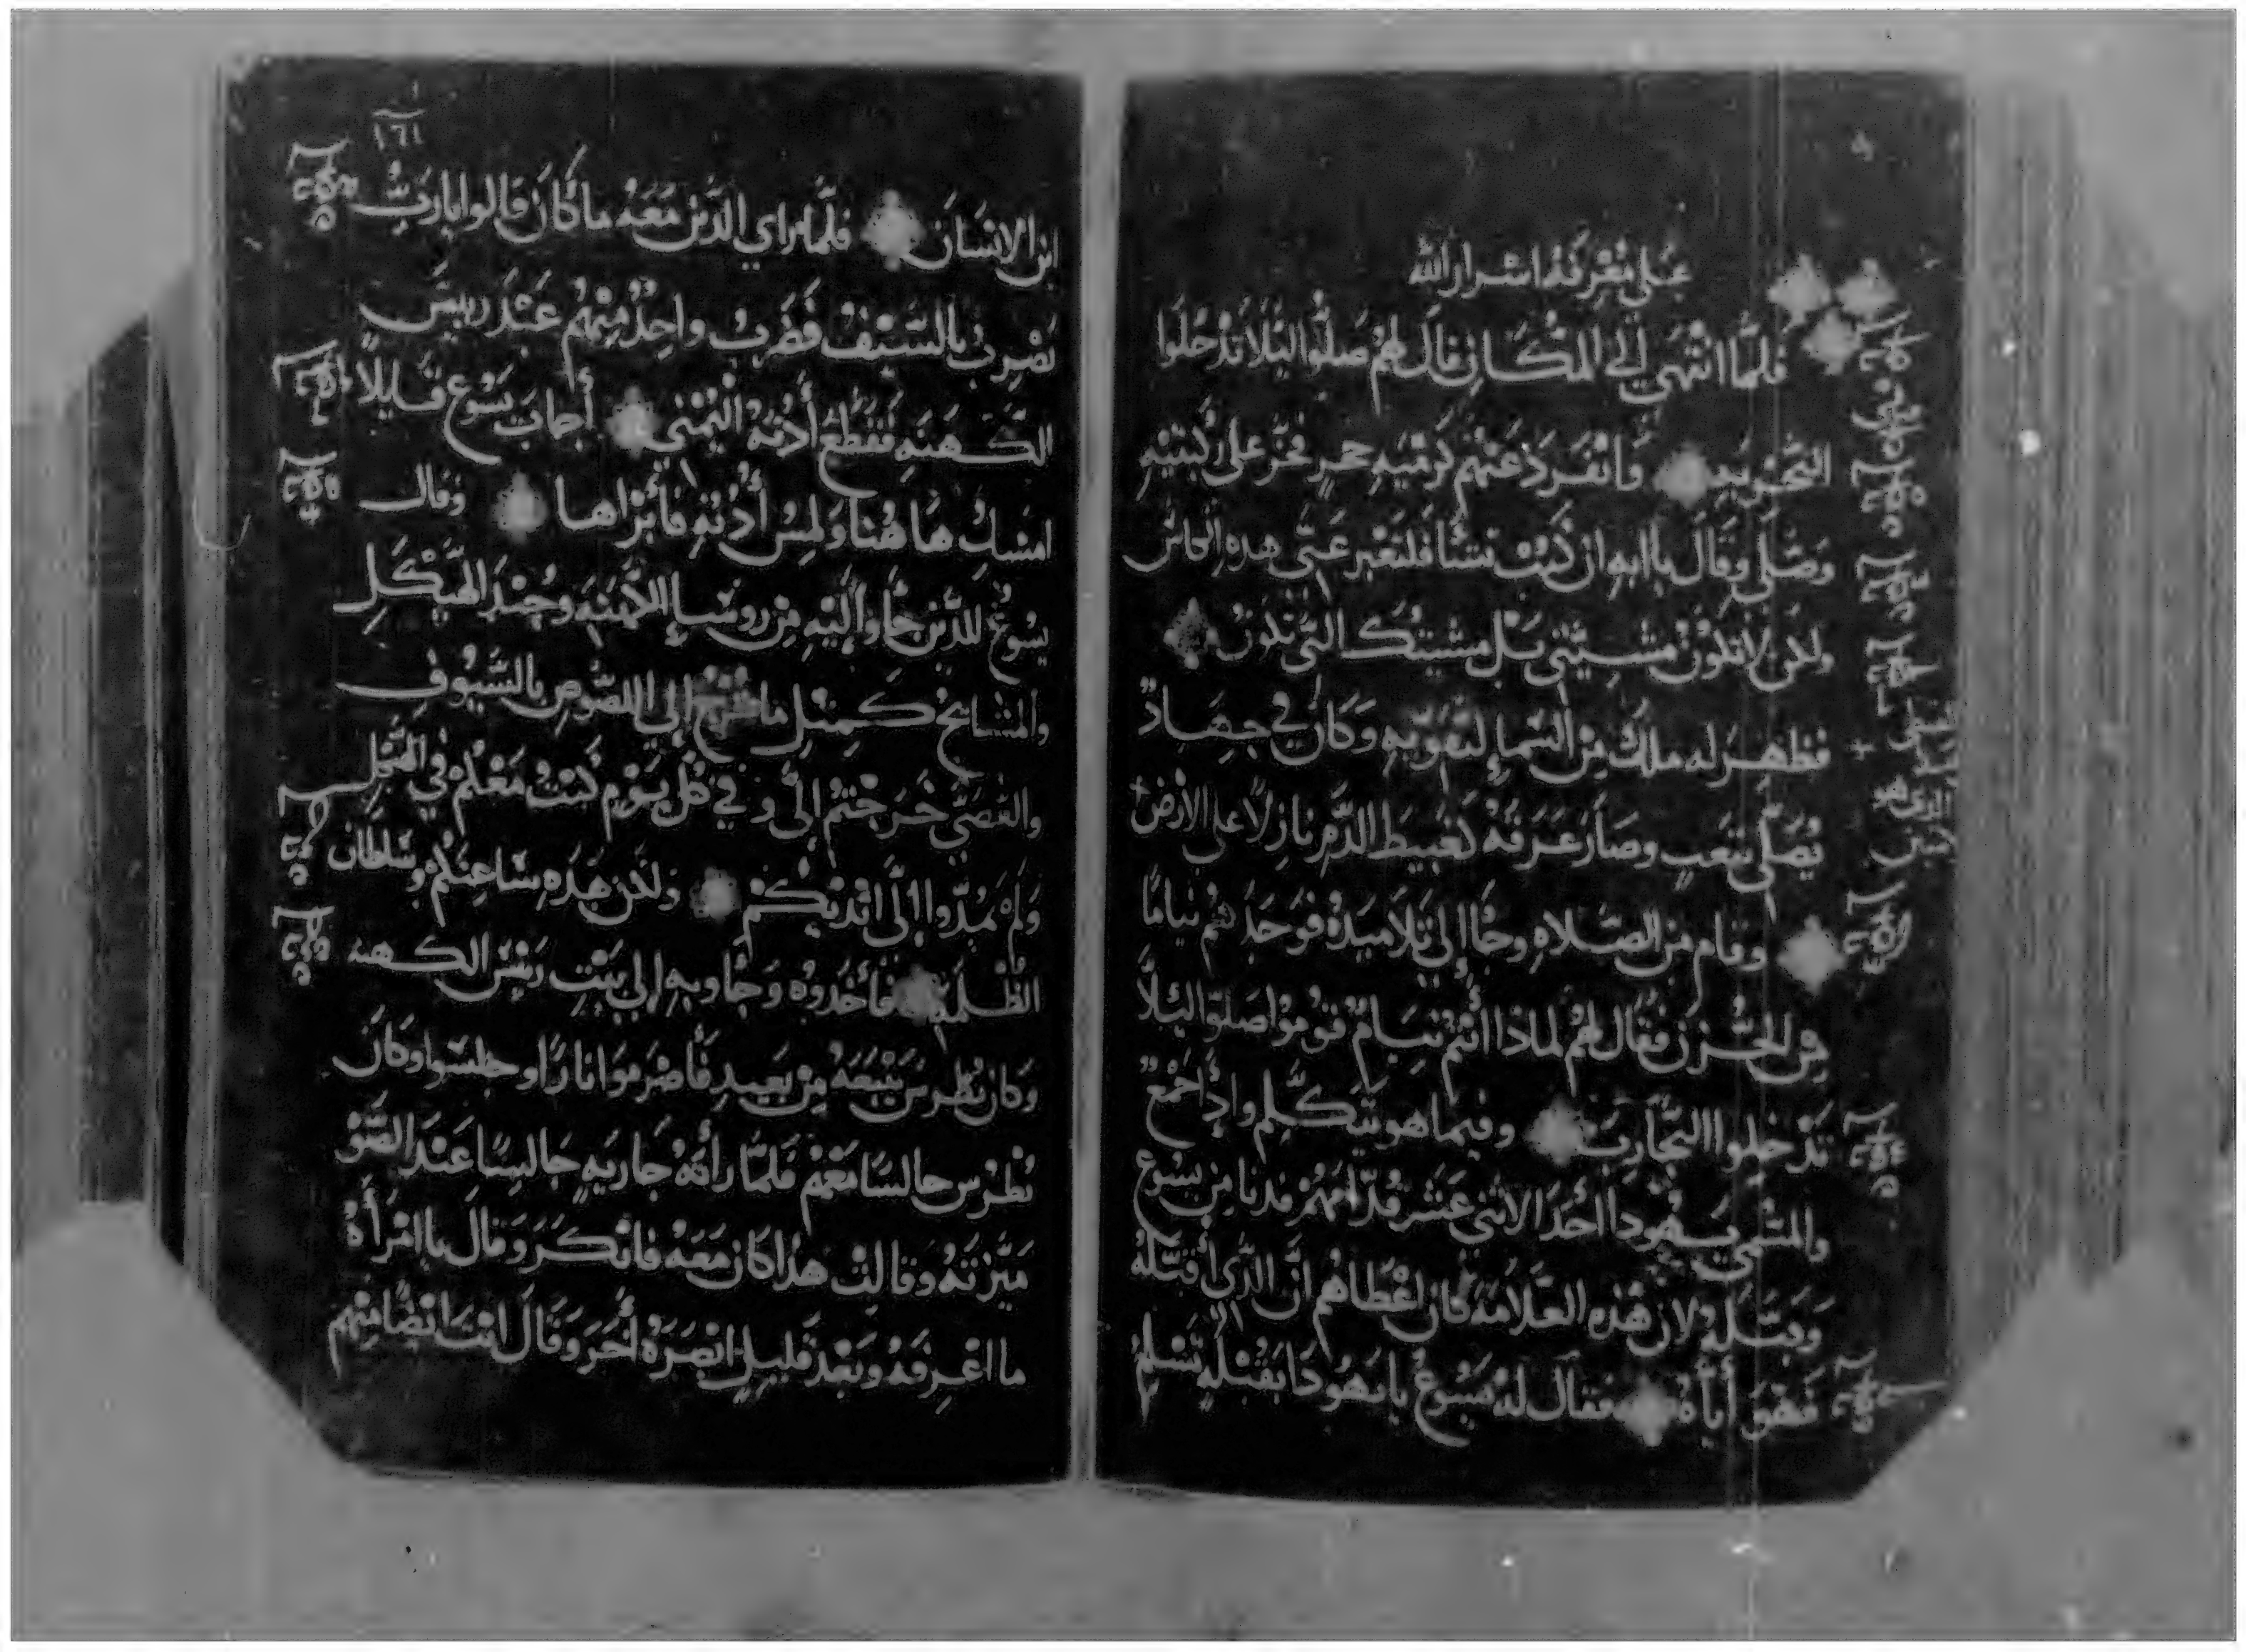 علي معرفه اسرار الله
فلما انتهي الي المكان قال لهم صلوا ليلا تدخلوا
التجربه وانفرد عنهم كرميه حجر فخر على ركبتيه
وصلي وقال يا ابه ان كنت تشا فلتعبر عني هده الكاس
ولكن لا تكون مشيتي بل مشيتك التي تكون
فظهر له ملك من السما ليقويه وكان في جهاد
يصلي بتعب وصار عرقه كعبيط الدم نازلا على الأرض
وقام من الصلاه وجا إلي تلاميده فوجدهم نياما
من الحزن فقال لهم لماذا أنتم نيام قوموا صلوا ليلا
تدخلوا التجارب وفيما هو يتكلم واذا جمع
والمسمي يهودا أحد الاثني عشر قدامهم فدنا من يسوع
وقبله لان هذه العلامه كان اعطاهم ان الذي أقبله
فهو أياه فقال له يسوع يا يهودا بقبله تسلم
١٦١
ابن الانسان فلما راي الذين معه ما كان قالوا يا رب
نضرب بالسيف فضرب واحد منهم عبد رييس
الكهنه فقطع أذنه اليمني أجاب يسوع قليلا
امسك هاهنا ولمس أذنه فأبراها وقال
يسوع للذين جاوا إليه من روسا الكهنه وجند الهيكل
والمشايخ كمثل ما إلي اللصوص بالسيوف
والعصي خرجتم إلي وفي كل يوم كنت معكم في الهيكل
ولم تمدوا إلي ايديكم ولكن هذه ساعتكم وسلطان
الظلمه فأخدوه وجاوبه إلي بيت رييس الكهنه
وكان بطرس يتبعه من بعيد فأضرموا نارا وجلسوا وكان
بطرس جالسا معهم فلما رأته جاريه جالسا عند الضو
ميزته وقالت هذا كان معه فانكر وقال يا امرأه
ما اعرفه وبعد قليل ابصره أخر وقال انت ايضا منهم